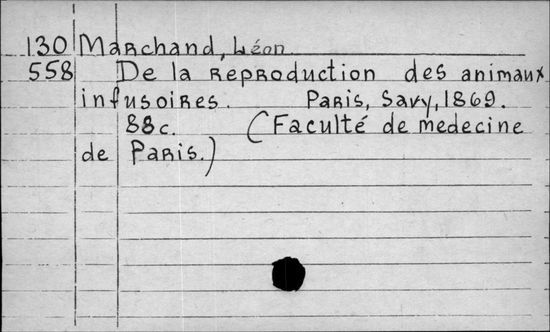 130 Marchand, Léon
558 De la reproduction des animaux
infusoires. Paris, Savy, 1869.
88c. (Faculté de medecine
de Paris.)